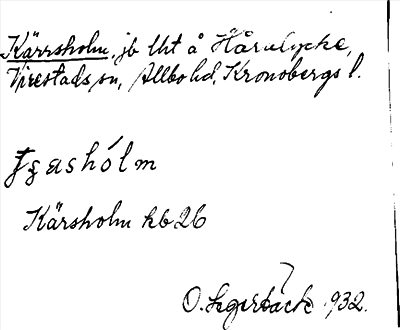 Kärrsholm, jb lht å Hårulycke,
Virestads sn, Allbo hd, Kronobergs l.
Kärsholm kb 26
O. Lagerbäck 1932.